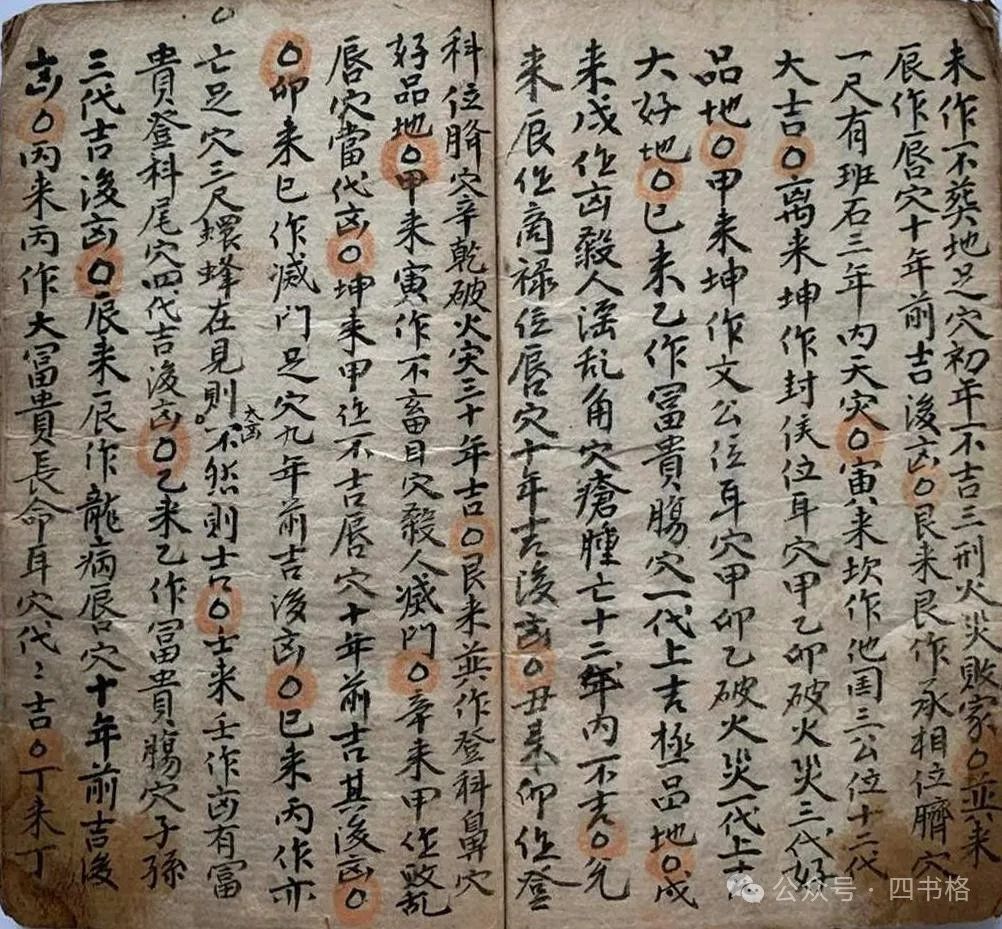 未作不葬地足穴初年不吉三刑火災敗家〇並来
辰作唇穴十年前吉後凶〇艮来艮作承相位臍穴
一尺有班石三年内天灾〇寅来坎作他国三公位十二代
大吉〇离来坤作封侯位耳穴甲乙卯破火災三代好
品地〇甲来坤作文公位耳穴甲卯乙破火災一代上吉
大好地〇巳来乙作冨貴腸穴一代上吉極品地〇戍
来戍作凶殺人滛乱角穴瘡腫亡十二年内不吉〇兑
来辰作商禄位唇穴十年吉後凶〇丑来卯作登
科位臍穴辛乾破火灾三十年吉〇艮来並作登科鼻穴
好品地〇甲来寅作不畜目穴殺人滅門〇辛来甲作敗乱
唇穴當代凶〇坤来甲作不吉唇穴十年前吉其後凶〇
〇卯来巳作滅門足穴九年前吉後凶〇巳来丙作亦
亡足穴三尺蠉蜂在見則大凶不然則士〇壬来壬作凶有富
貴登科尾穴四代吉後凶〇乙来乙作冨貴腸穴子孫
三代吉後凶〇辰来辰作龍病唇穴十年前吉後
凶〇丙来丙作大富貴長命耳穴代〻吉〇丁来丁
公众号·四书格